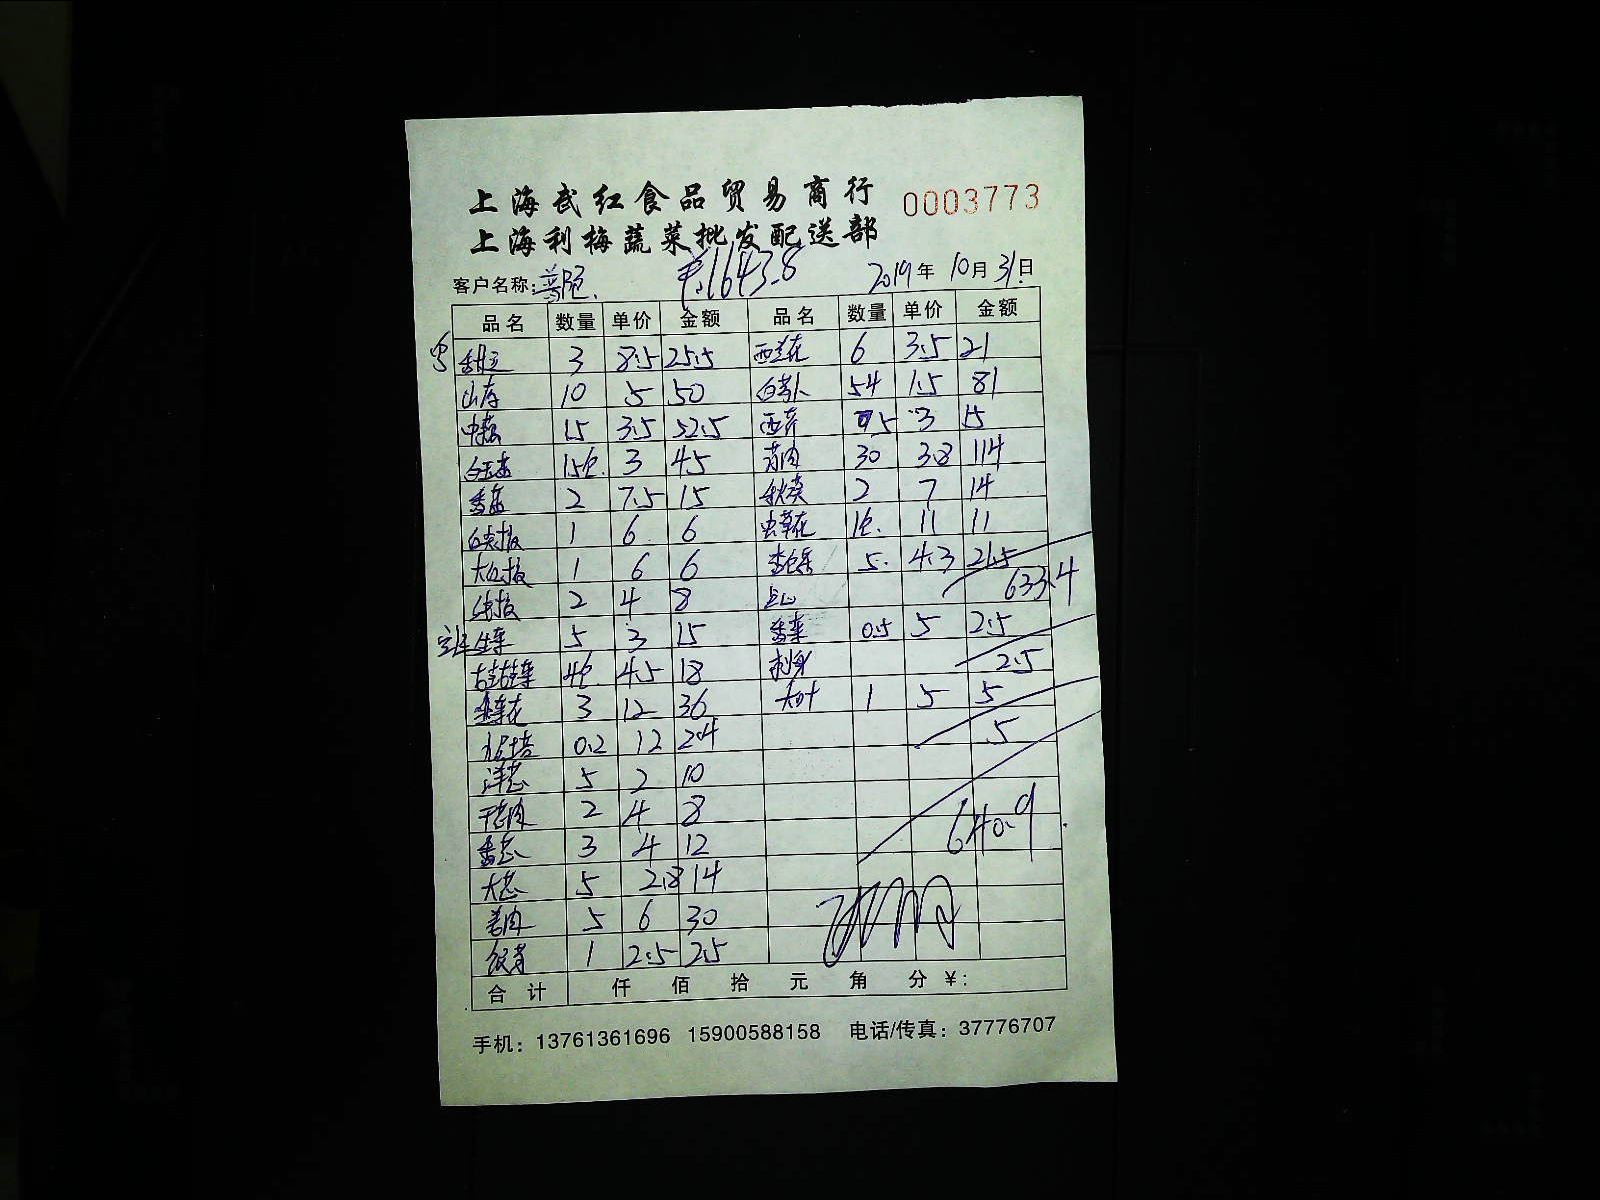 上海武红食品贸易商行 0003773
上海利梅蔬菜批发配送部
客户名称: 普陀. ¥1643.8 2019年10月31日
品名 数量 单价 金额 品名 数量 单价 金额
3 8.5 25.5 西兰花 6 3.5 21
山药 10 5 50 白萝卜 54 1.5 81
15 3.5 52.5 西芹 5 3 15
白玉菇 15包. 3 45 30 3.8 114
香菇 2 7.5 15 秋葵 2 7 14
白尖椒 1 6 6 虫草花 1包. 11 11
大红椒 1 6 6 杏鲍菇 5. 4.3 21.5
633.4
2 4 8 点心
生菜 5 3 15 香菜 0.5 5 2.5
4包 4.5 18 刺身
2.5
3 12 36 大叶 1 5 5
0.2 12 2.4
5
洋芯 5 2 10
2 4 8
香芯 3 4 12
640.9
大芯 5 2.8 14
姜肉 5 6 30
1 2.5 2.5
合计 仟 佰 拾 元 角 分 ¥:
手机: 13761361696 15900588158 电话/传真: 37776707